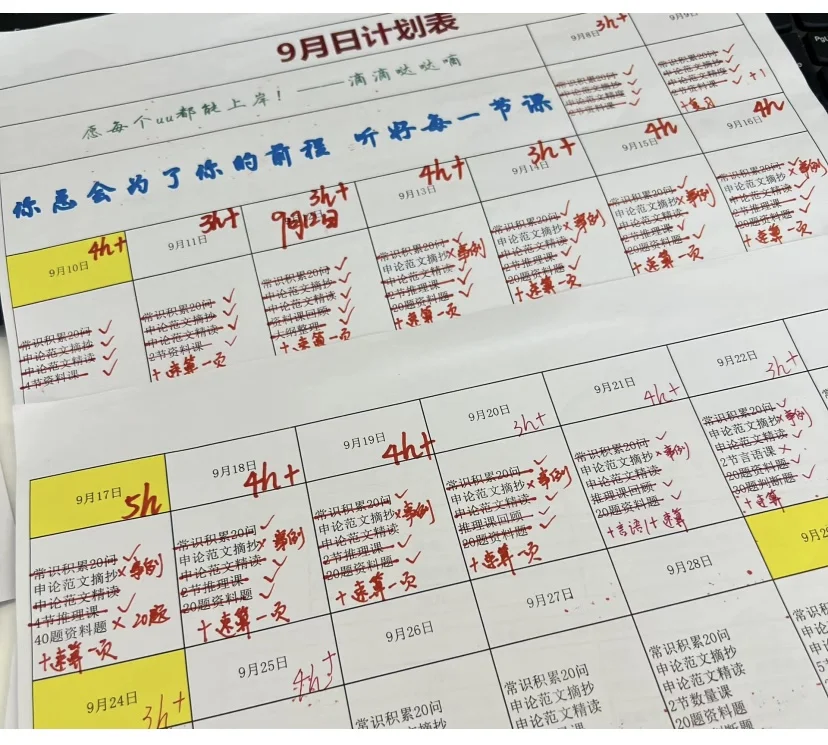 9月日计划表
愿每个uu都能上岸！——滴滴哒哒嘀
你总会为了你的前程 听好每一节课
9月8日 3h+
9月9日
常识积累20问 ✓
申论范文摘抄 ✓
申论范文精读 ✓
常识积累20问 ✓
申论范文摘抄 ✓
申论范文精读 ✓
2节资料课 ✓ +1
9月10日 4h+
9月11日 3h+
9月12日 3h+
9月13日 4h+
9月14日 3h+
9月15日 4h
9月16日 4h
常识积累20问 ✓
申论范文摘抄 ✓
申论范文精读 ✓
4节资料课 ✓
常识积累20问 ✓
申论范文摘抄 ✓
申论范文精读 ✓
2节资料课 ✓
+速算一页
常识积累20问 ✓
申论范文摘抄 ✓
申论范文精读 ✓
资料课回顾 ✓
+速算一页
常识积累20问 ✓
申论范文摘抄×事例
申论范文精读 ✓
2节推理课 ✓
20题资料题 ✓
+速算一页
常识积累20问 ✓
申论范文摘抄×事例
申论范文精读 ✓
2节推理课 ✓
20题资料题 ✓
+速算一页
常识积累20问 ✓
申论范文摘抄×事例
申论范文精读 ✓
2节推理课 ✓
20题资料题 ✓
+速算一页
常识积累20问 ✓
申论范文摘抄×事例
申论范文精读 ✓
2节推理课 ✓
20题资料题 ✓
+速算一页
9月17日 5h
9月18日 4h+
9月19日 4h+
9月20日 3h+
9月21日 4h+
9月22日 3h+
常识积累20问 ✓
申论范文摘抄×事例
申论范文精读
4节推理课 ✓
40题资料题 × 20题
+速算一页
常识积累20问 ✓
申论范文摘抄×事例
申论范文精读 ✓
2节推理课 ✓
20题资料题 ✓
+速算一页
常识积累20问 ✓
申论范文摘抄×事例
申论范文精读
2节推理课 ✓
20题资料题 ✓
+速算一页
常识积累20问 ✓
申论范文摘抄×事例
申论范文精读 ✓
推理课回顾 ✓
20题资料题 ✓
+速算一页
常识积累20问 ✓
申论范文摘抄×事例
申论范文精读
推理课回顾 ✓
20题资料题 ✓
+言语1+速算
常识积累20问 ✓
申论范文摘抄×事例
申论范文精读 ✓
2节言语课 ×
20题资料题 ✓
30题判断题 ✓
+速算
9月24日 3h+
9月25日 4h+
9月26日
9月27日
9月28日
常识积累20问
常识积累20问
申论范文摘抄
申论范文精读
常识积累20问
申论范文摘抄
申论范文精读
2节数量课
20题资料题